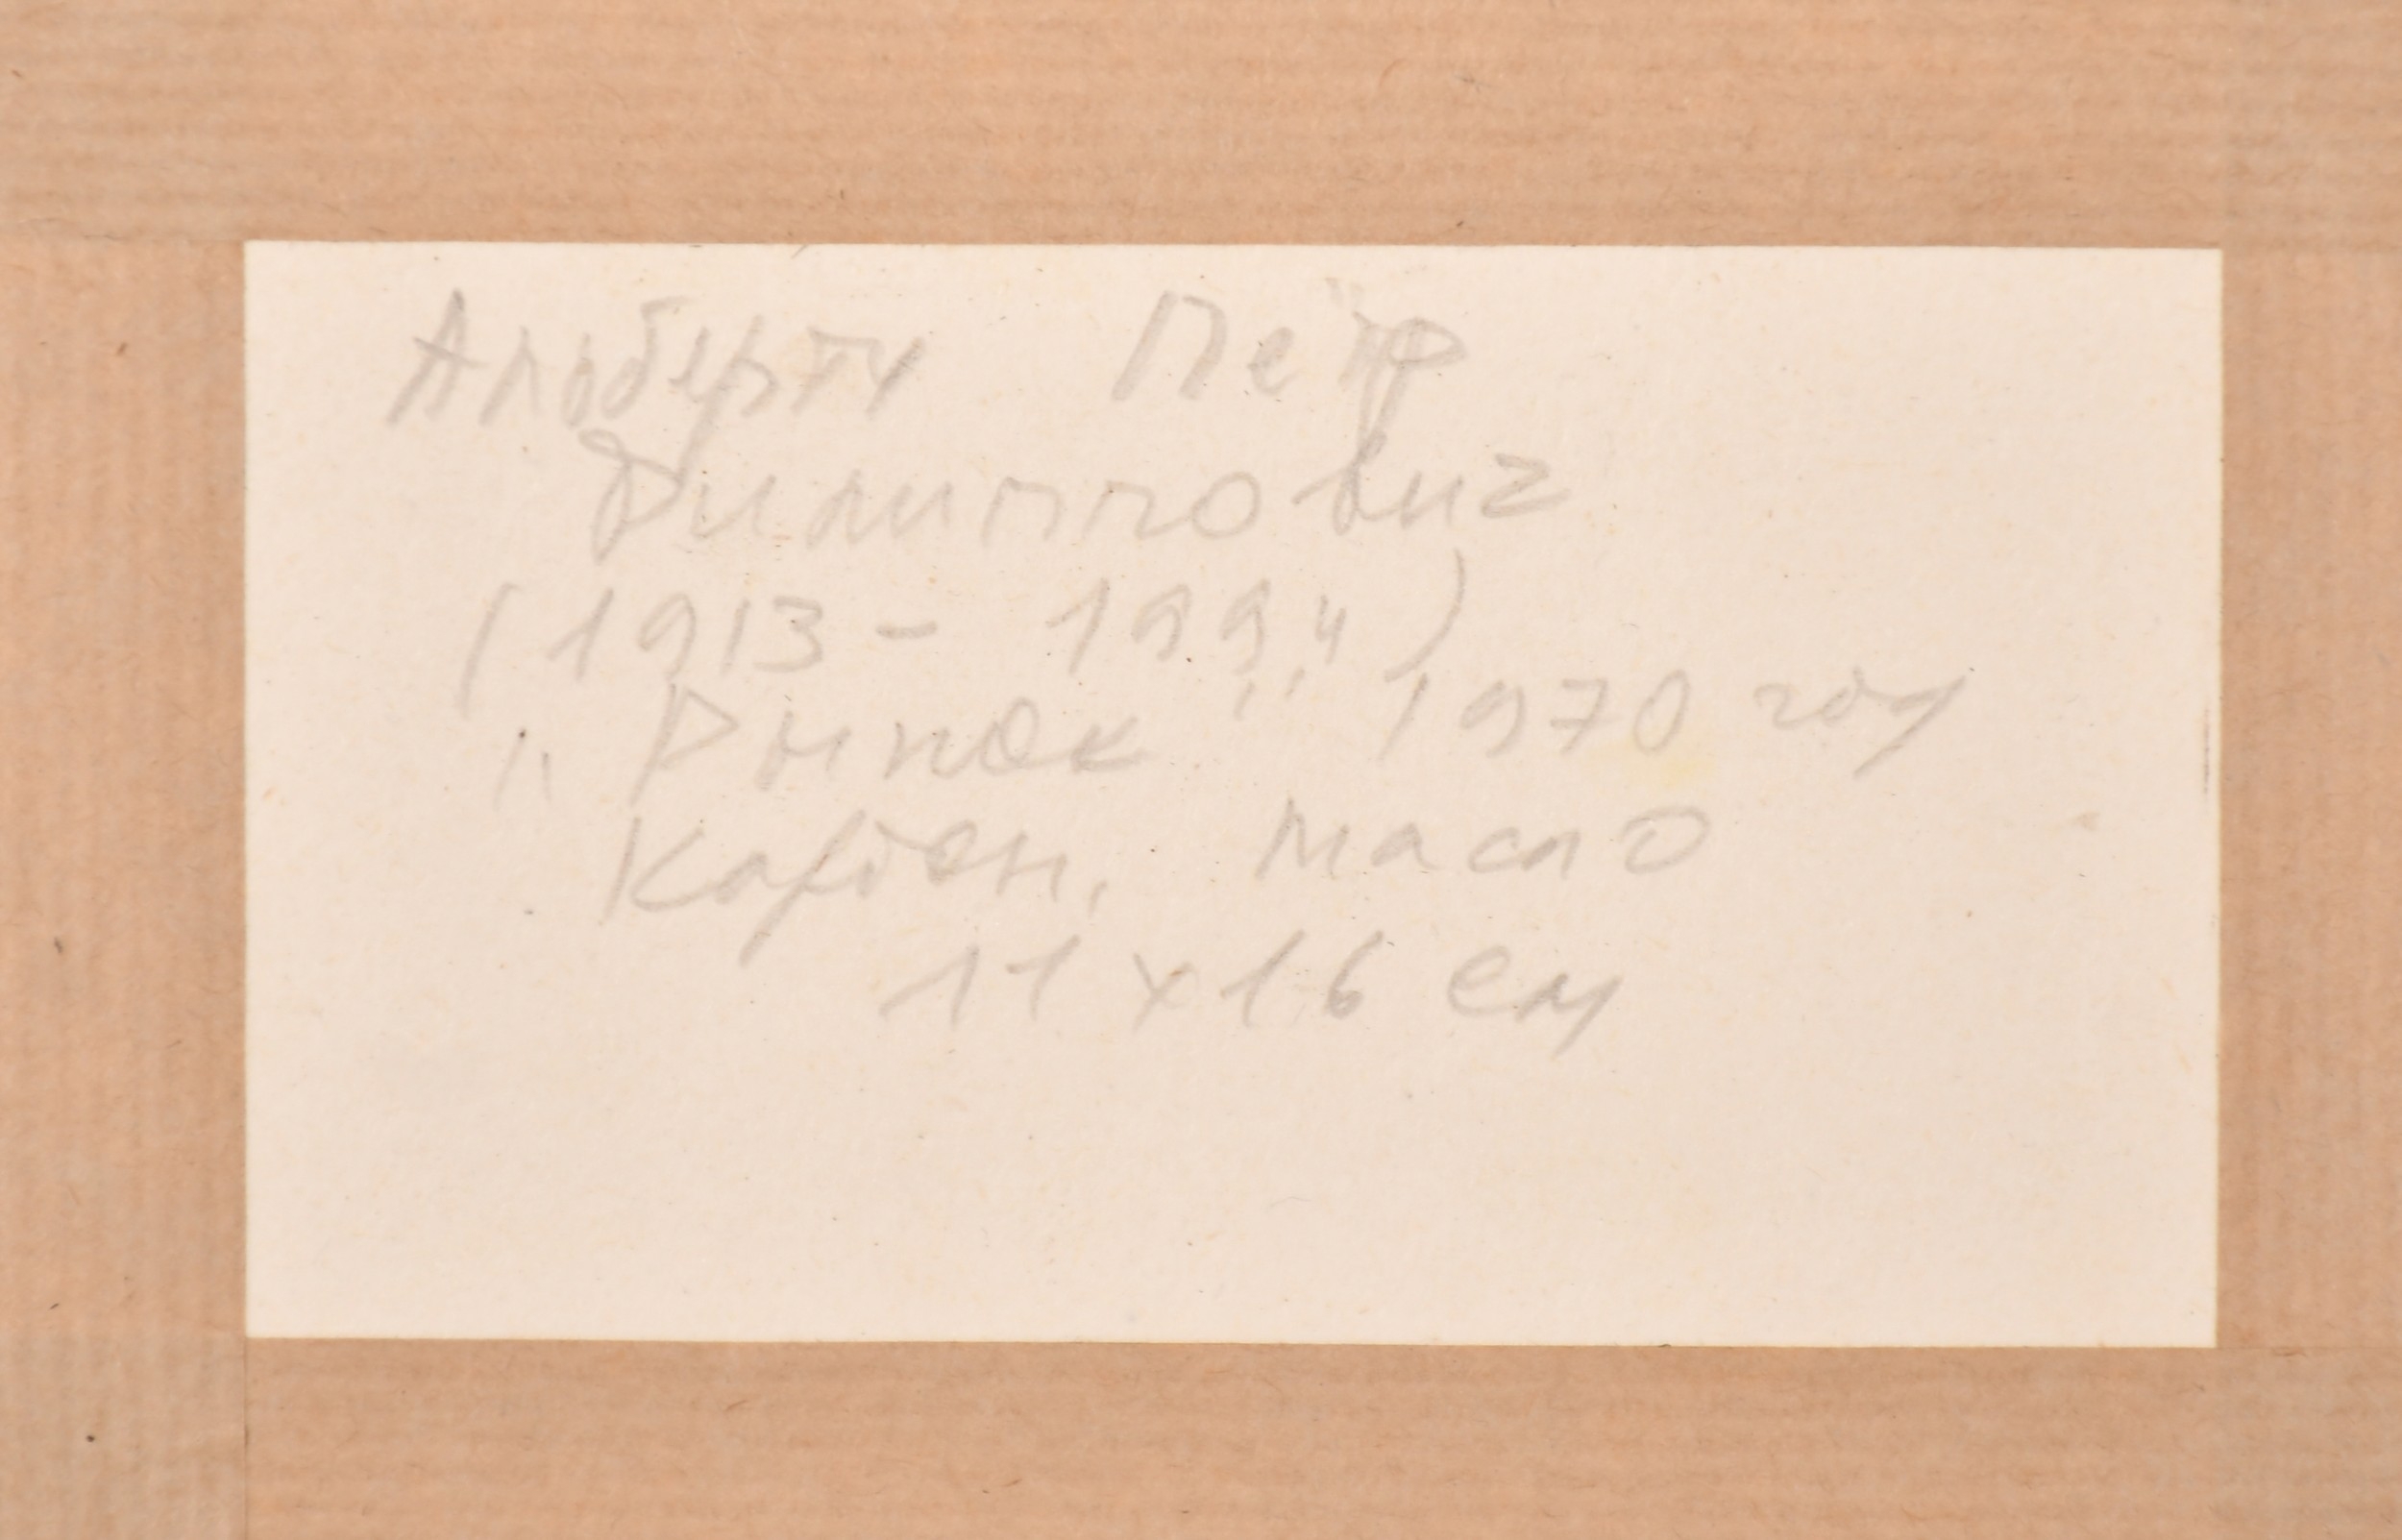 Альберти Пётр
Филиппович
(1913 - 1994)
"Рынок" 1970 год
Картон, масло
11 x 16 см